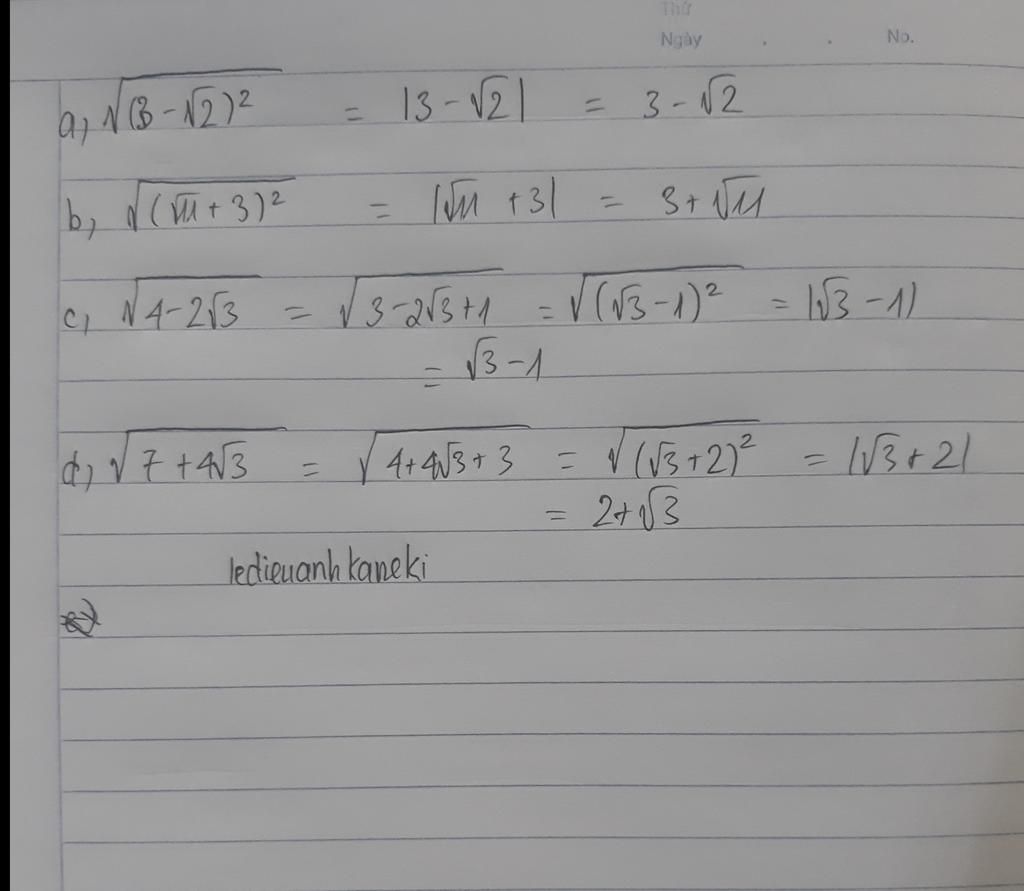 Thứ
Ngày . . No.
a, √(3 - √2)² = |3 - √2| = 3 - √2
b, √(√11 + 3)² = |√11 + 3| = 3 + √11
c, √4 - 2√3 = √3 - 2√3 + 1 = √(√3 - 1)² = |√3 - 1|
= √3 - 1
d, √7 + 4√3 = √4 + 4√3 + 3 = √(√3 + 2)² = |√3 + 2|
= 2 + √3
ledieuanhkaneki